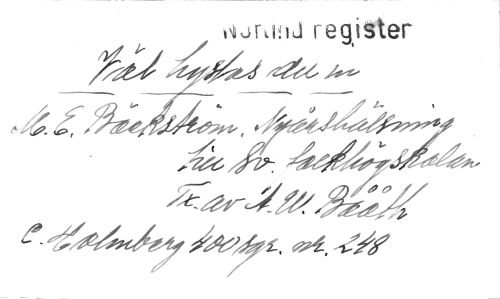 Norlind register
Väl hystas du m
M. E. Bäckström, Nyårshälsning
till Sv. folkhögskolan
Tx. av A. U. Bååth
C. Holmberg 400 sgr. nr. 248